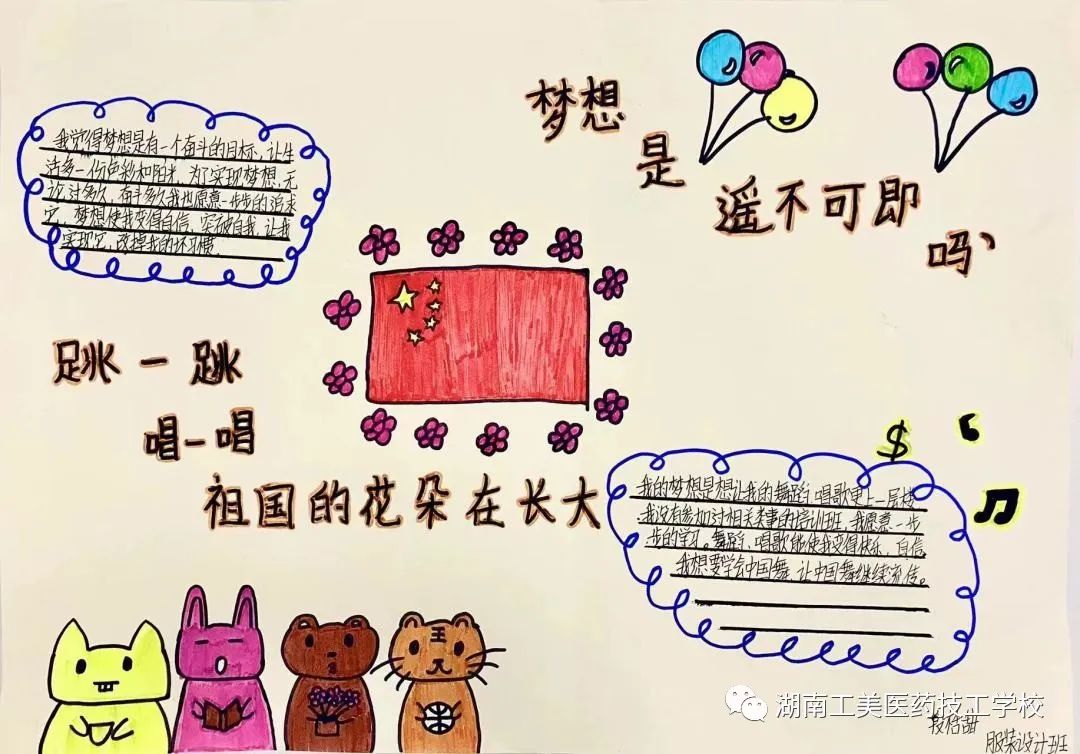 梦想
是
遥不可即
吗、
我觉得梦想是有一个奋斗的目标,让生
活多一份色彩和阳光,为了实现梦想,无
论过多久,奋斗多久我也愿意一步步的追求
它,梦想使我变得自信,突破自我,让我
实现它,改掉我的坏习惯。
跳一跳
唱一唱
祖国的花朵在长大
$
我的梦想是想让我的舞蹈,唱歌更上一层楼
我没有参加过相关类事的培训班,我愿意一步
步的学习。舞蹈、唱歌能使我变得快乐、自信
我想要学会中国舞,让中国舞继续流传。
王
湖南工美医药技工学校
服装设计班